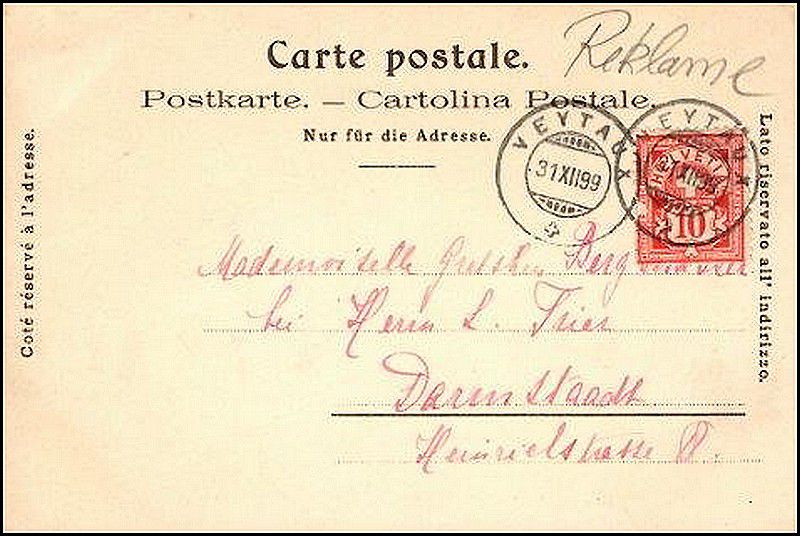 Carte postale.
Reklame
Postkarte. — Cartolina Postale.
Nur für die Adresse.
Coté réservé à l'adresse.
Lato riservato all' indirizzo.
VEYTAUX
31 XII 99
VEYTAUX
31 XII 99
HELVETIA
10
Mademoiselle
bei Herrn L. Trier
Darmstaadt